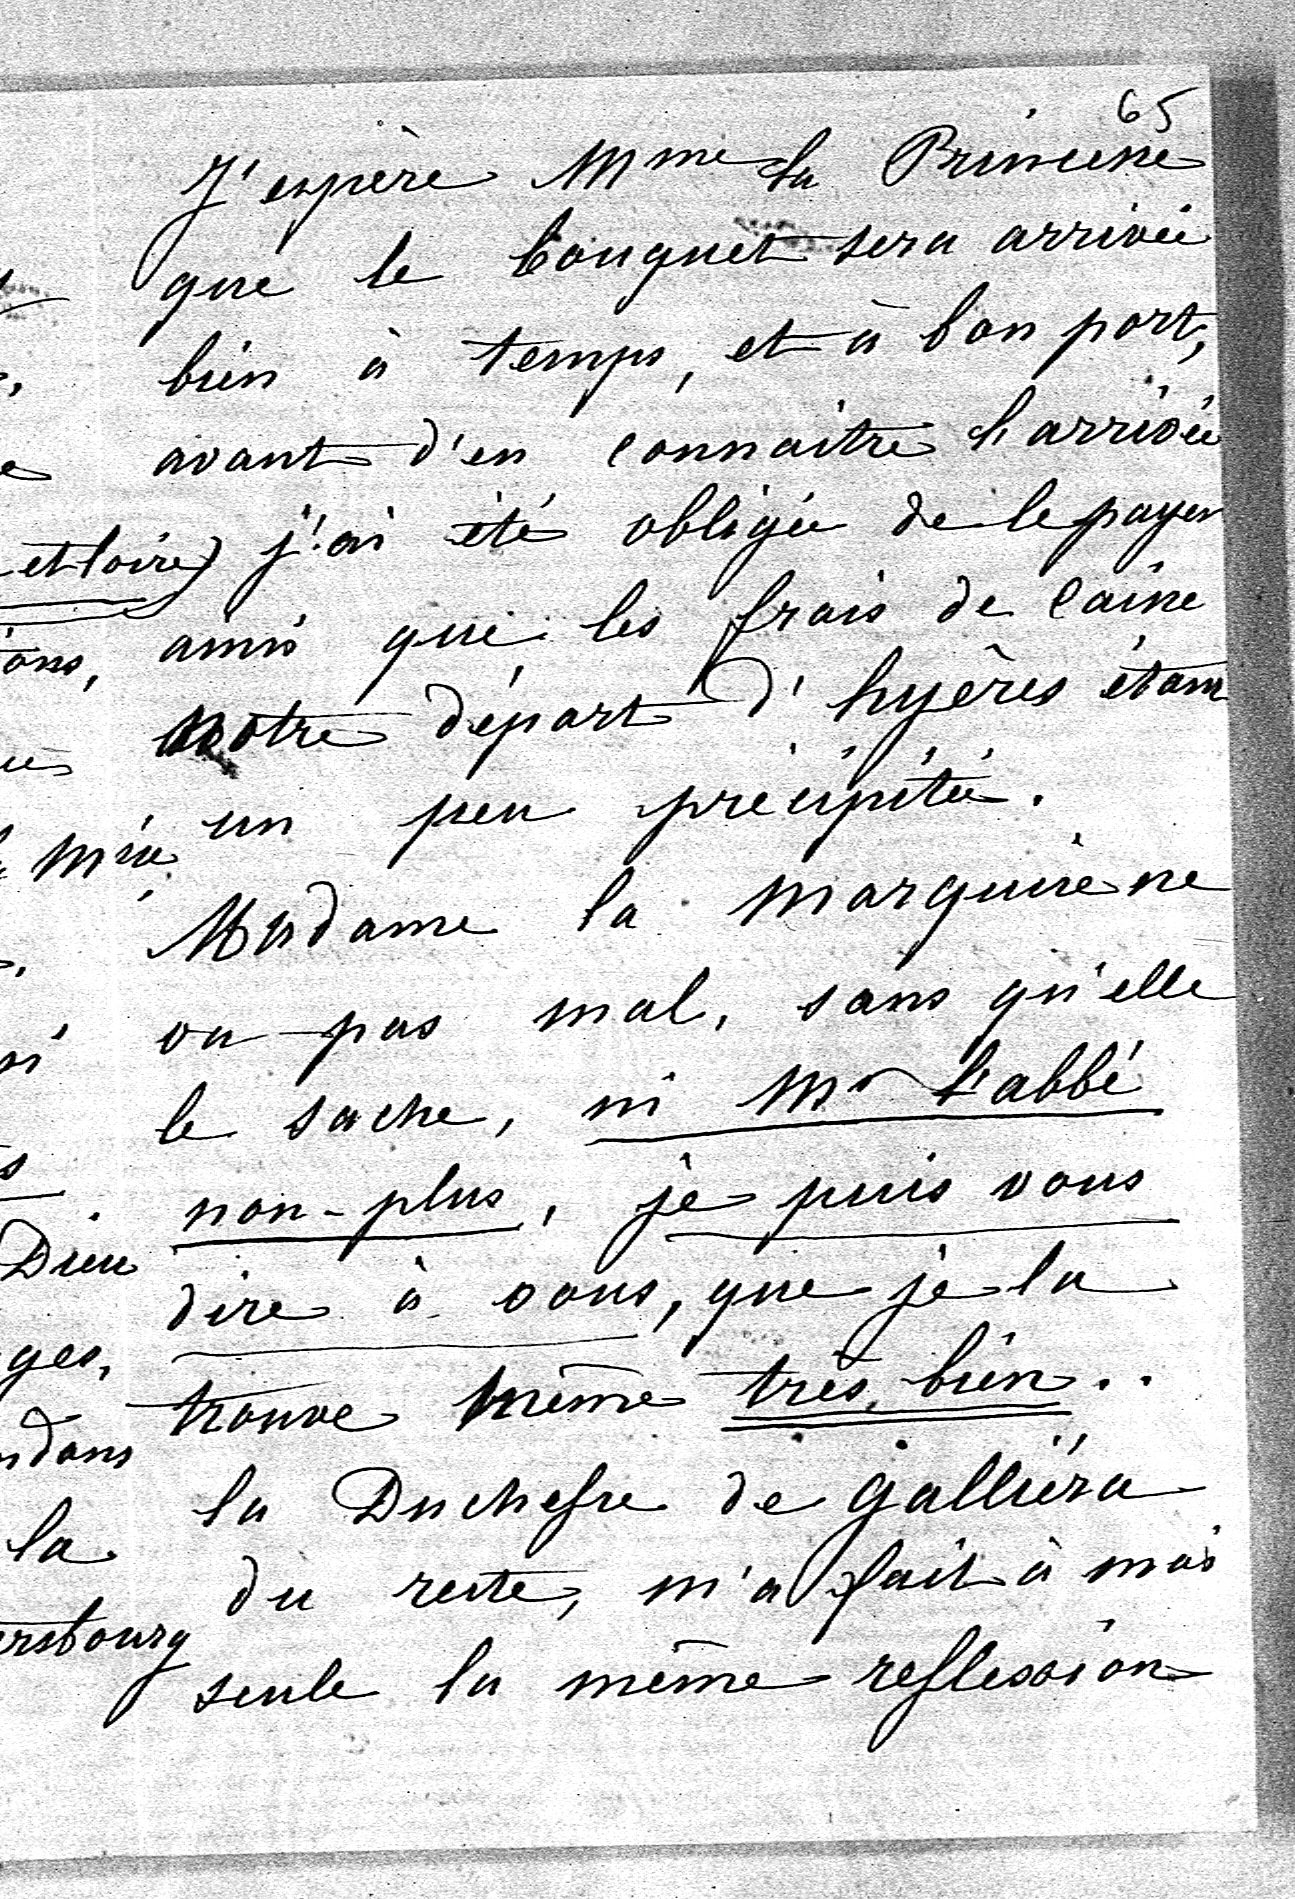 65
J'espère Mme la Princesse
que le bouquet sera arrivée
bien à temps, et à bon port,
avant d'en connaitre l'arrivée
j'ai été obligée de le payer
ainsi que les frais de caisse
notre départ d'hyères étant
un peu précipitée.
Madame la marquise ne
va pas mal, sans qu'elle
le sache, ni Mr l'abbé
non-plus, je puis vous
dire à vous, que je la
trouve même très bien..
la Duchesse de galliéra
du reste, m'a fait à moi
seule la même reflession
et loire)
Dieu
la